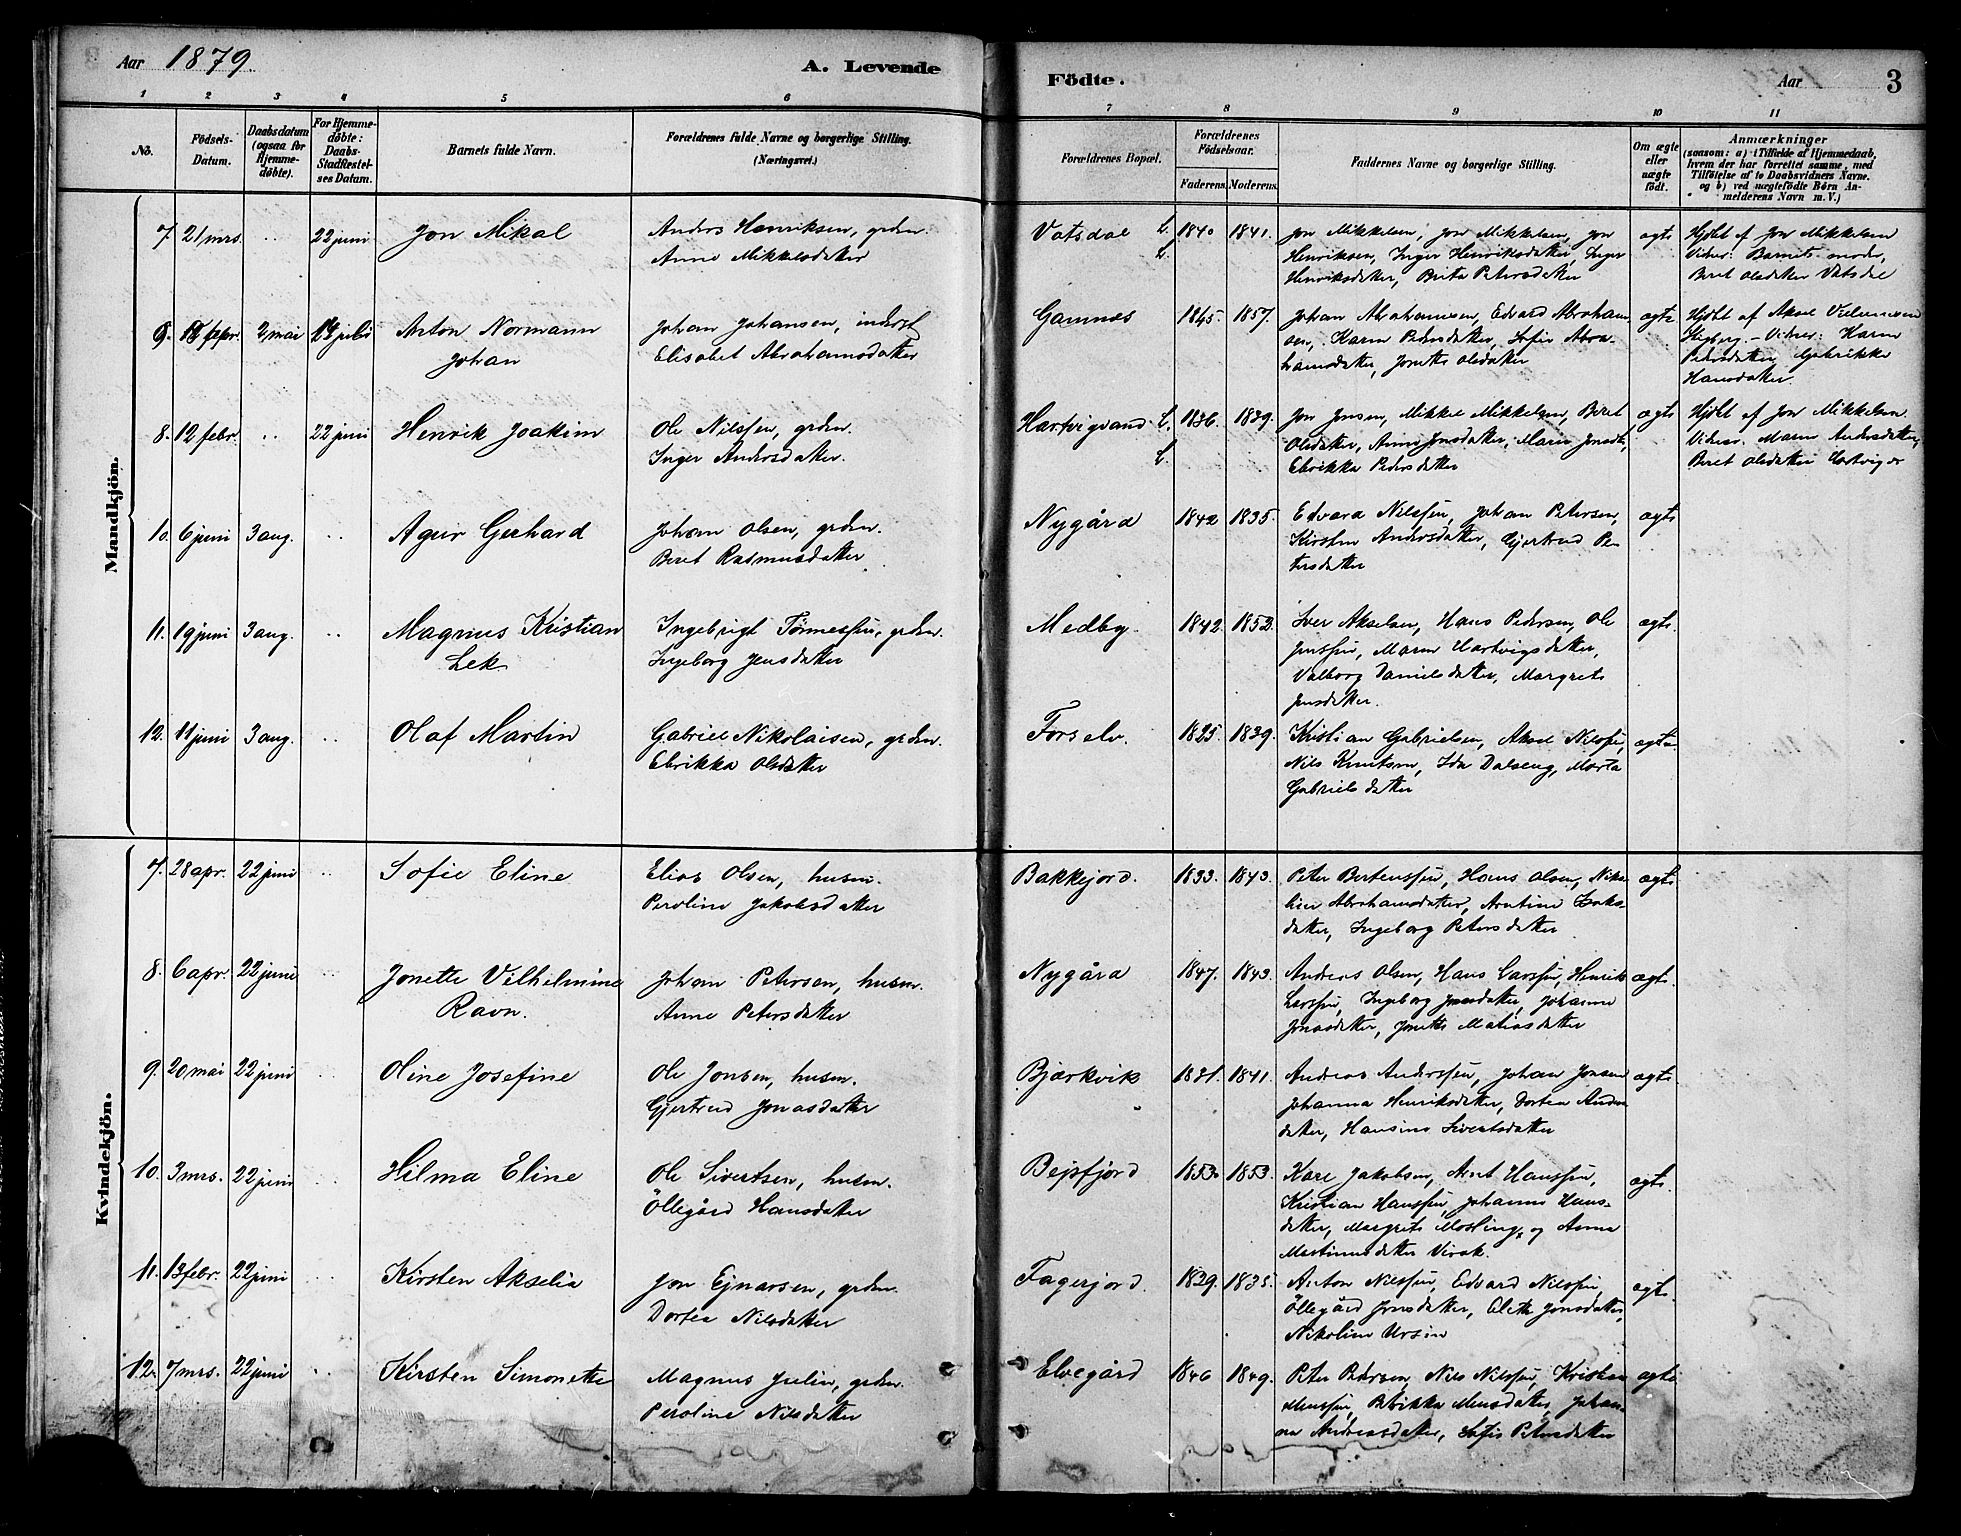 Aar 1879.
A. Levende
Födte.
Aar
3
1 2 3 4 5 6 7 8 9 10 11
No.
Födsels-
Datum.
Daabsdatum
(ogsaa for
Hjemme-
døbte).
For Hjemme-
døbte:
Daabs-
Stadfæstel-
ses Datum.
Barnets fulde Navn.
Forældrenes fulde Navne og borgerlige Stilling.
(Næringsvei.)
Forældrenes Bopæl.
Forældrenes
Födselsaar.
Faderens. Moderens.
Faddernes Navne og borgerlige Stilling.
Om ægte
eller
uægte
födt.
Anmærkninger
(saasom: a) i Tilfælde af Hjemmedaab,
hvem der har forrettet samme, med
Tilföielse af to Daabsvidners Navne.
og b) ved uægtefödte Börn An-
melderens Navn m. V.)
Mandkjön.
7. 21 mrs. .. 22 juni Jon Mikal
Anders Henriksen, grdm.
Anne Mikkelsdatter
Vatsdal L. 1840 1841.
L.
Jon Mikkelsen, Jon Mikkelsen, Jon
Henriksen, Inger Henriksdatter, Inger
Henriksdatter, Berta Petersdatter
ægte
Hjdbt af Jon Mikkelsen
Vidner: Barnets moder,
Beret Olsdatter Vatsdal
9. febr. 2 mai juli Anton Normann
Johan
Johan Johansen, inderst
Elisabet Abrahamsdatter
Gamnes 1845. 1857.
Johan Abrahamsen, Edvard Abraham-
sen, Karen Pedersdatter, Sofie Abra-
hamsdatter, Jonette Olsdatter
ægte
Hjdbt af Aksel
Vidner: Karen
Pedersdatter, Hansdatter.
8. 12 febr. .. 22 juni Henrik Joakim
Ole Nilssen, grdm.
Inger Andersdatter.
Hartvigvand L. 1836. 1839.
L.
Jon Jonsen, Mikkel Mikkelsen, Beret
Olsdatter, Anne Jonsdatter, Maren Jonsdt,
Elrikka Pedersdatter
ægte
Hjdbt af Jon Mikkelsen.
Vidner. Maren Andersdatter,
Beret Olsdatter
10. 6 juni 3 aug. .. Agur Gerhard
Johan Olsen, grdm.
Beret Rasmusdatter
Nygård 1842 1835.
Edvard Nilssen, Johan Petersen,
Kirsten Andersdatter, Gjertrud Pe-
tersdatter
ægte
11. 19 juni 3 aug. .. Magnus Kristian
Lek
Ingebrigt Tørnessen, grdm.
Ingeborg Jensdatter
Medby. 1842. 1852.
Iver Akselsen, Hans Pedersen, Ole
Jenssen, Maren Hartvigsdatter,
Valborg Danielsdatter, Margrete
Jensdatter.
ægte.
12. 11 juni 3 aug. .. Olaf Martin
Gabriel Nikolaisen, grdm.
Elrikka Olsdatter
Forselv. 1825. 1839.
Kristian Gabrielsen, Aksel Nilssen,
Nils Knutsen, Ida Dalseng, Marta
Gabrielsdatter
ægte
Kvindekjön.
7. 28 apr. 22 juni .. Sofie Eline
Elias Olsen, husm.
Peroline Jakobsdatter
Bakkejord. 1833. 1843.
Peter Bertenssen, Hans Olsen, Niko-
line Abrahamsdatter, Arntine Isaks-
datter, Ingeborg Petersdatter
ægte
8. 6 apr. 22 juni .. Jonette Vilhelmine
Ravn.
Johan Petersen, husm.
Anne Petersdatter
Nygård 1847. 1843.
Andreas Olsen, Hans Larssen, Henrik
Larssen, Ingeborg Jonsdatter, Johanna
Jonasdatter, Jonette Matiasdatter
ægte.
9. 20 mai 22 juni .. Oline Josefine
Ole Jonsen, husm.
Gjertrud Jonasdatter
Bjærkvik 1831. 1841.
Andreas Anderssen, Johan Jonsen
Johanna Henriksdatter, Dortea Anders-
datter, Hansine Sivertsdatter
ægte.
10. 3 mrs. 22 juni .. Hilma Eline
Ole Sivertsen, husm.
Öllegård Hansdatter
Bejsfjord 1853. 1853.
Karl Jakobsen, Arnt Hanssen,
Kristian Hanssen, Johanna Hans-
datter, Margrete Mosling, og Anna
Martinusdatter Virak.
ægte.
11. 13 febr. 22 juni .. Kirsten Akselia
Jon Ejnarsen, grdm.
Dortea Nilsdatter
Fagerjord. 1829. 1835.
Anton Nilssen, Edvard Nilssen,
Öllegård Jonsdatter, Elett Jonsdatter,
Nikoline Ursin
ægte.
12. 7 mrs. 22 juni .. Kirsten Simonette
Magnus Julin, grdm.
Peroline Nilsdatter
Elvegård 1846 1849.
Peter Pedersen, Nils Nilssen, Kristen
Menssen, Menssdatter, Johan-
na Andreasdatter, Sofie Petersdatter
ægte